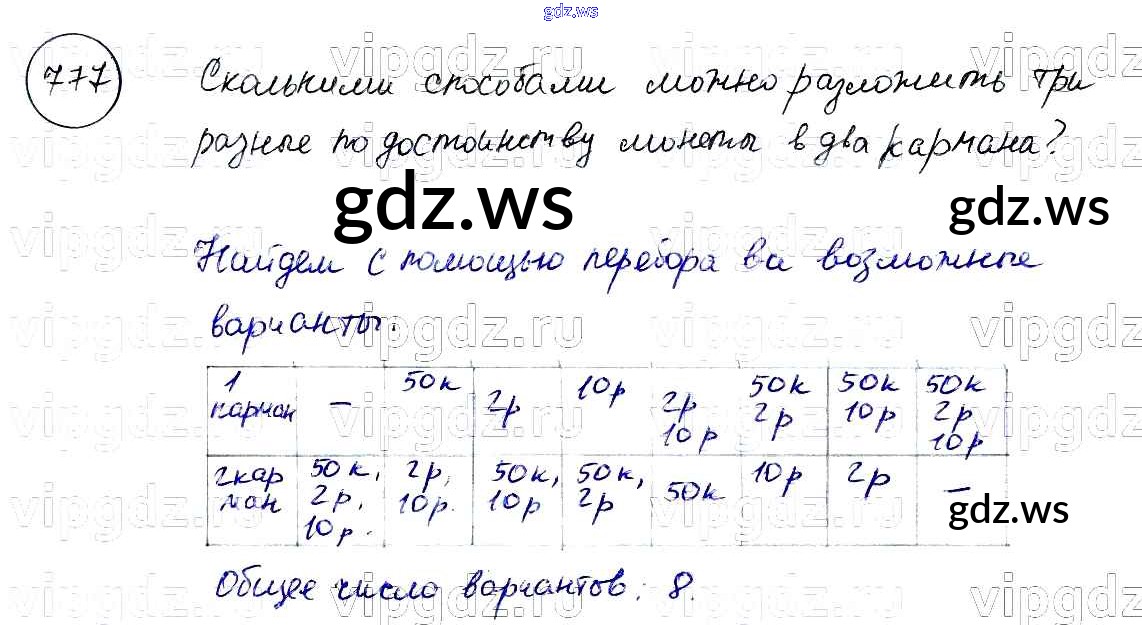 gdz.ws
777
Сколькими способами можно разложить три
разные по достоинству монеты в два кармана?
gdz.ws gdz.ws
Найдем с помощью перебора ва возможные
варианты.
1 карман | – | 50к | 2р | 10р | 2р 10р | 50к 2р | 50к 10р | 50к 2р 10р
2 карман | 50к, 2р, 10р. | 2р, 10р. | 50к, 10р | 50к, 2р | 50к | 10р | 2р | –
gdz.ws
Общее число вариантов: 8.
vipgdz.ru